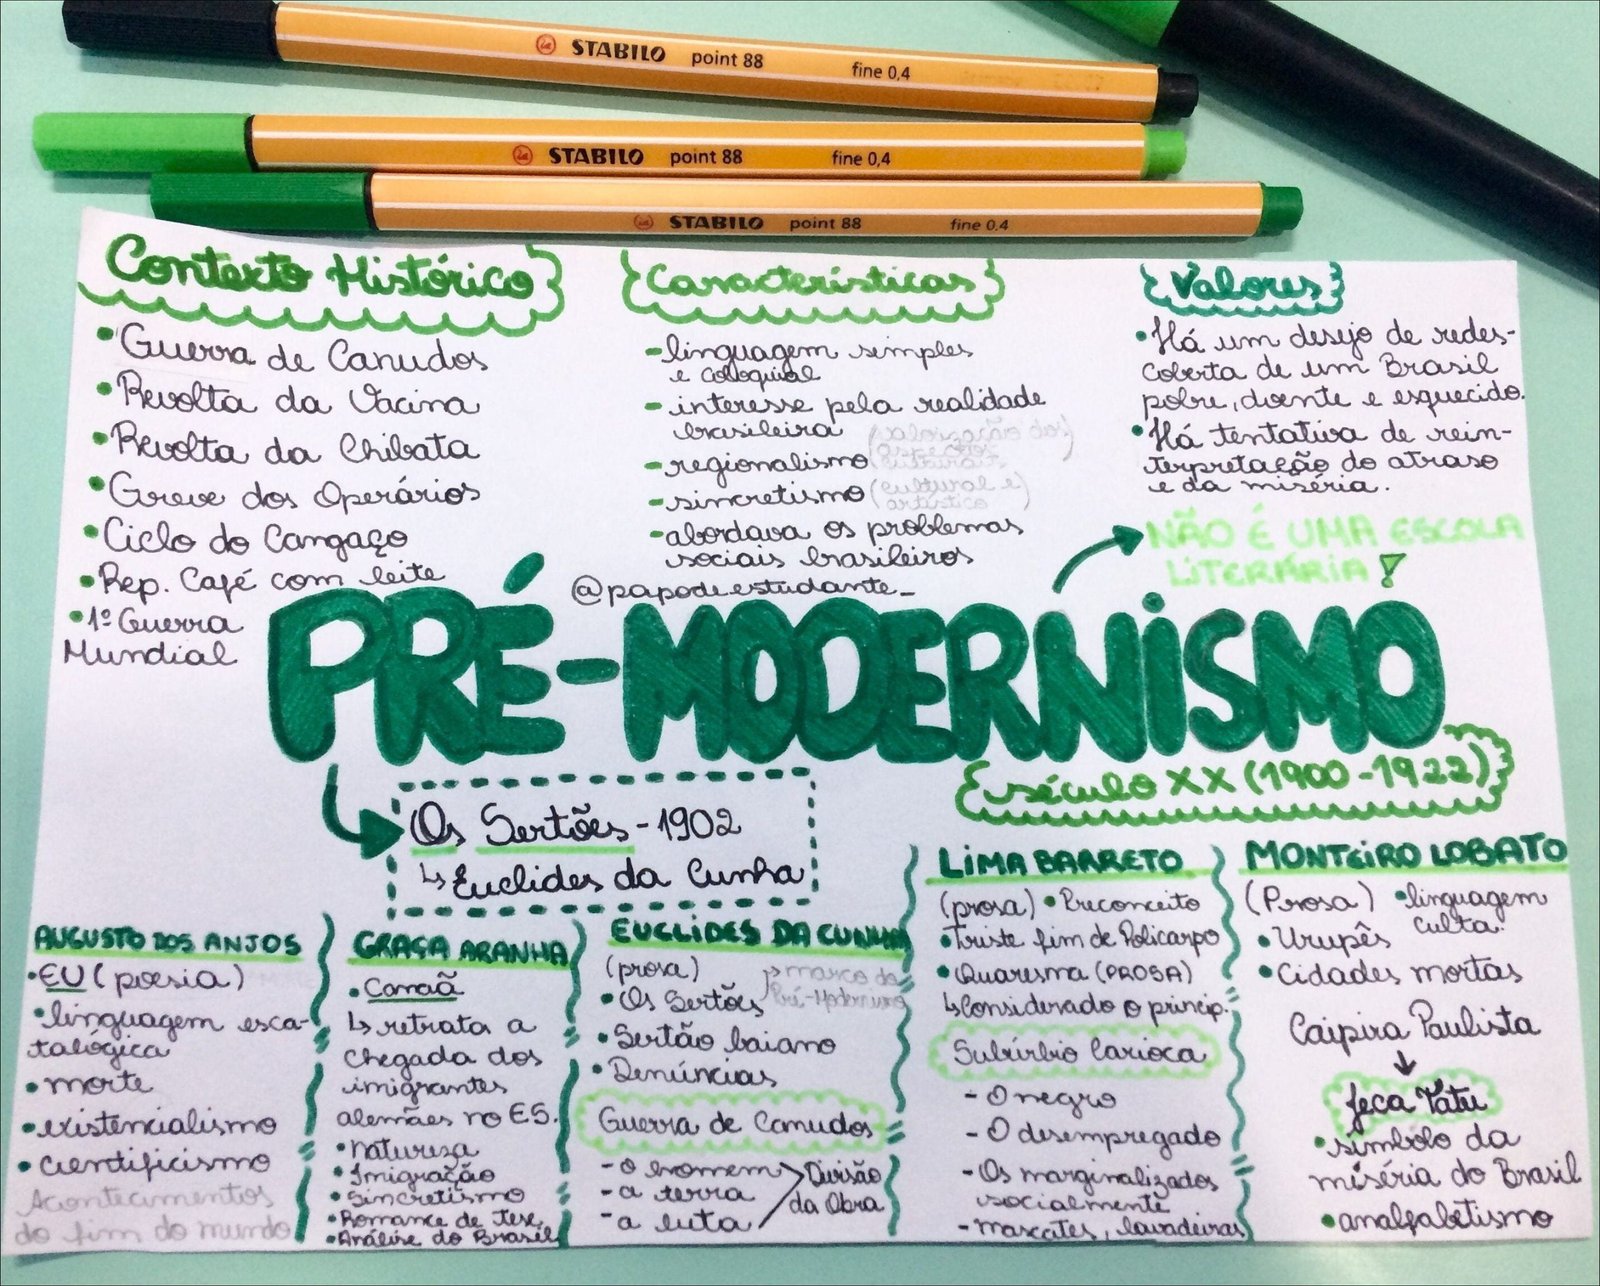 STABILO point 88 fine 0,4
STABILO point 88 fine 0,4
STABILO point 88 fine 0,4
Contexto Histórico
• Guerra de Canudos
• Revolta da Vacina
• Revolta da Chibata
• Greve dos Operários
• Ciclo do Cangaço
• Rep. Café com leite
• 1º Guerra
Mundial
Características
- linguagem simples
e coloquial
- interesse pela realidade
brasileira
- regionalismo (valorização dos
aspectos
culturais
- sincretismo (cultural e
artístico)
- abordava os problemas
sociais brasileiros
@papodeestudante_
Valores
• Há um desejo de redes-
coberta de um Brasil
pobre, doente e esquecido.
• Há tentativa de rein-
terpretação do atraso
e da miséria.
NÃO É UMA ESCOLA
LITERÁRIA!
PRÉ-MODERNISMO
século XX (1900-1922)
Os Sertões - 1902
↳ Euclides da Cunha
AUGUSTO DOS ANJOS
• EU (poesia)
• linguagem esca-
talógica
• morte
• existencialismo
• cientificismo
Acontecimentos
do fim do mundo
GRAÇA ARANHA
• Canaã
↳ retrata a
chegada dos
imigrantes
alemães no ES.
• Natureza
• Imigração
• Sincretismo
• Romance de tese,
• Análise do Brasil
EUCLIDES DA CUNHA
(prosa)
• Os Sertões → marco do
Pré-Modernismo
• Sertão baiano
• Denúncias
Guerra de Canudos
- o homem
- a terra
- a luta
Divisão
da Obra
LIMA BARRETO
(prosa) • Preconceito
• Triste fim de Policarpo
• Quaresma (PROSA)
↳ Considerado o princip.
Subúrbio Carioca
- O negro
- O desempregado
- Os marginalizados
socialmente
- mascates, lavadeiras
MONTEIRO LOBATO
(Prosa) • linguagem
culta.
• Urupês
• Cidades mortas
Caipira Paulista
↓
Jeca Tatu
• símbolo da
miséria do Brasil
• analfabetismo